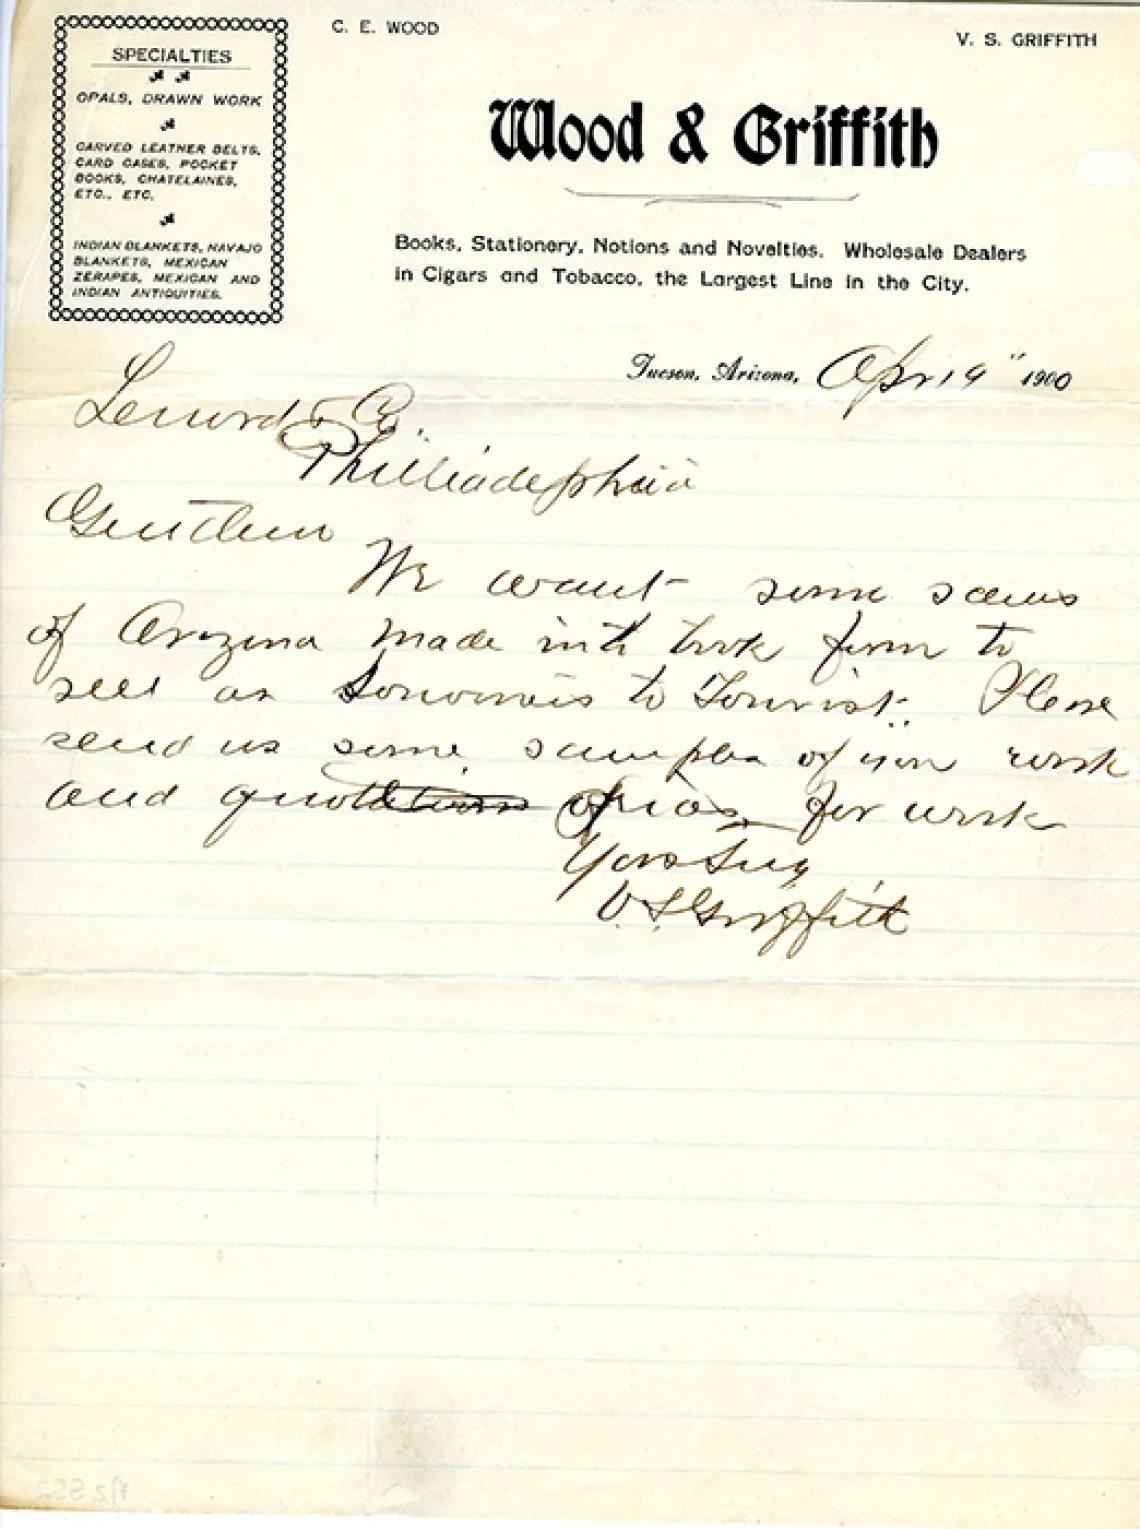 C. E. WOOD
V. S. GRIFFITH
SPECIALTIES
OPALS, DRAWN WORK
CARVED LEATHER BELTS,
CARD CASES, POCKET
BOOKS, CHATELAINES,
ETC., ETC.
INDIAN BLANKETS, NAVAJO
BLANKETS, MEXICAN
ZERAPES, MEXICAN AND
INDIAN ANTIQUITIES.
Wood & Griffith
Books, Stationery, Notions and Novelties. Wholesale Dealers
in Cigars and Tobacco, the Largest Line in the City.
Tucson, Arizona, Apr 19" 1900
& Co.
Philliadelphia
Gentlem
We want some
of Arizona made into book form to
sell as to Tourist. Please
send us some samples of your work
and for work
Yors Truy
V. S. Griffith